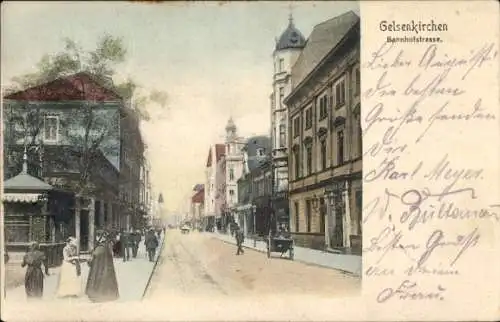 Gelsenkirchen
Bahnhofstrasse.
Lieber August!
die besten
Grüße senden
dir
Karl Meyer.
W.
Besten Gruß
von meiner
Frau.